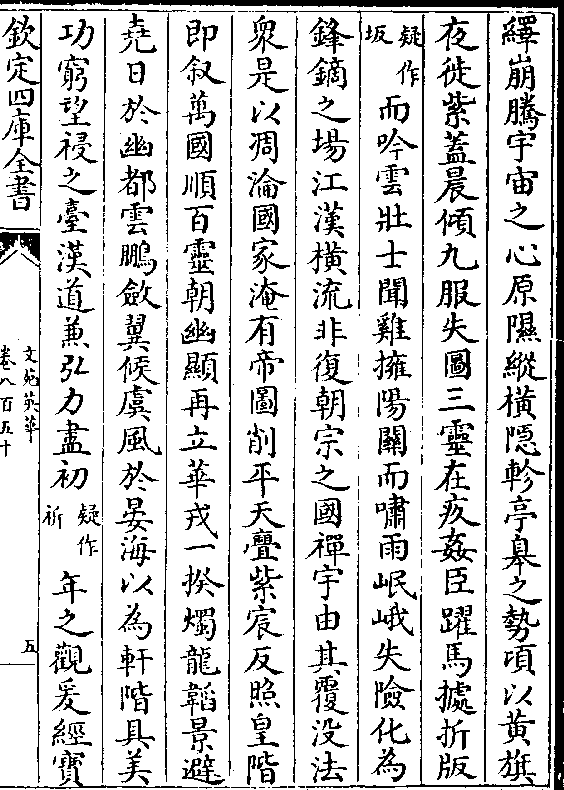 繹崩騰宇宙之心原隰縱横隐軫亭臯之勢項以黄旗
夜徙紫葢晨傾九服失圖三靈在疚姦臣躍馬㨿折版
疑作坂而吟雲壯士聞雞擁陽關而嘯雨岷峨失險化為
鋒鏑之場江漢横流非復朝宗之國禪宇由其覆没法
衆是以凋淪國家淹有帝圖削平天亹紫宸反照皇階
即叙萬國順百靈朝幽顯再立華戎一揆燭龍韜景避
堯日於幽都雲鵬斂翼候虞風於晏海以為軒階具美
功窮望祲之臺漢道兼弘力盡初疑作祈年之觀爰經寶
欽定四庫全書
文苑英華
卷八百五十
五